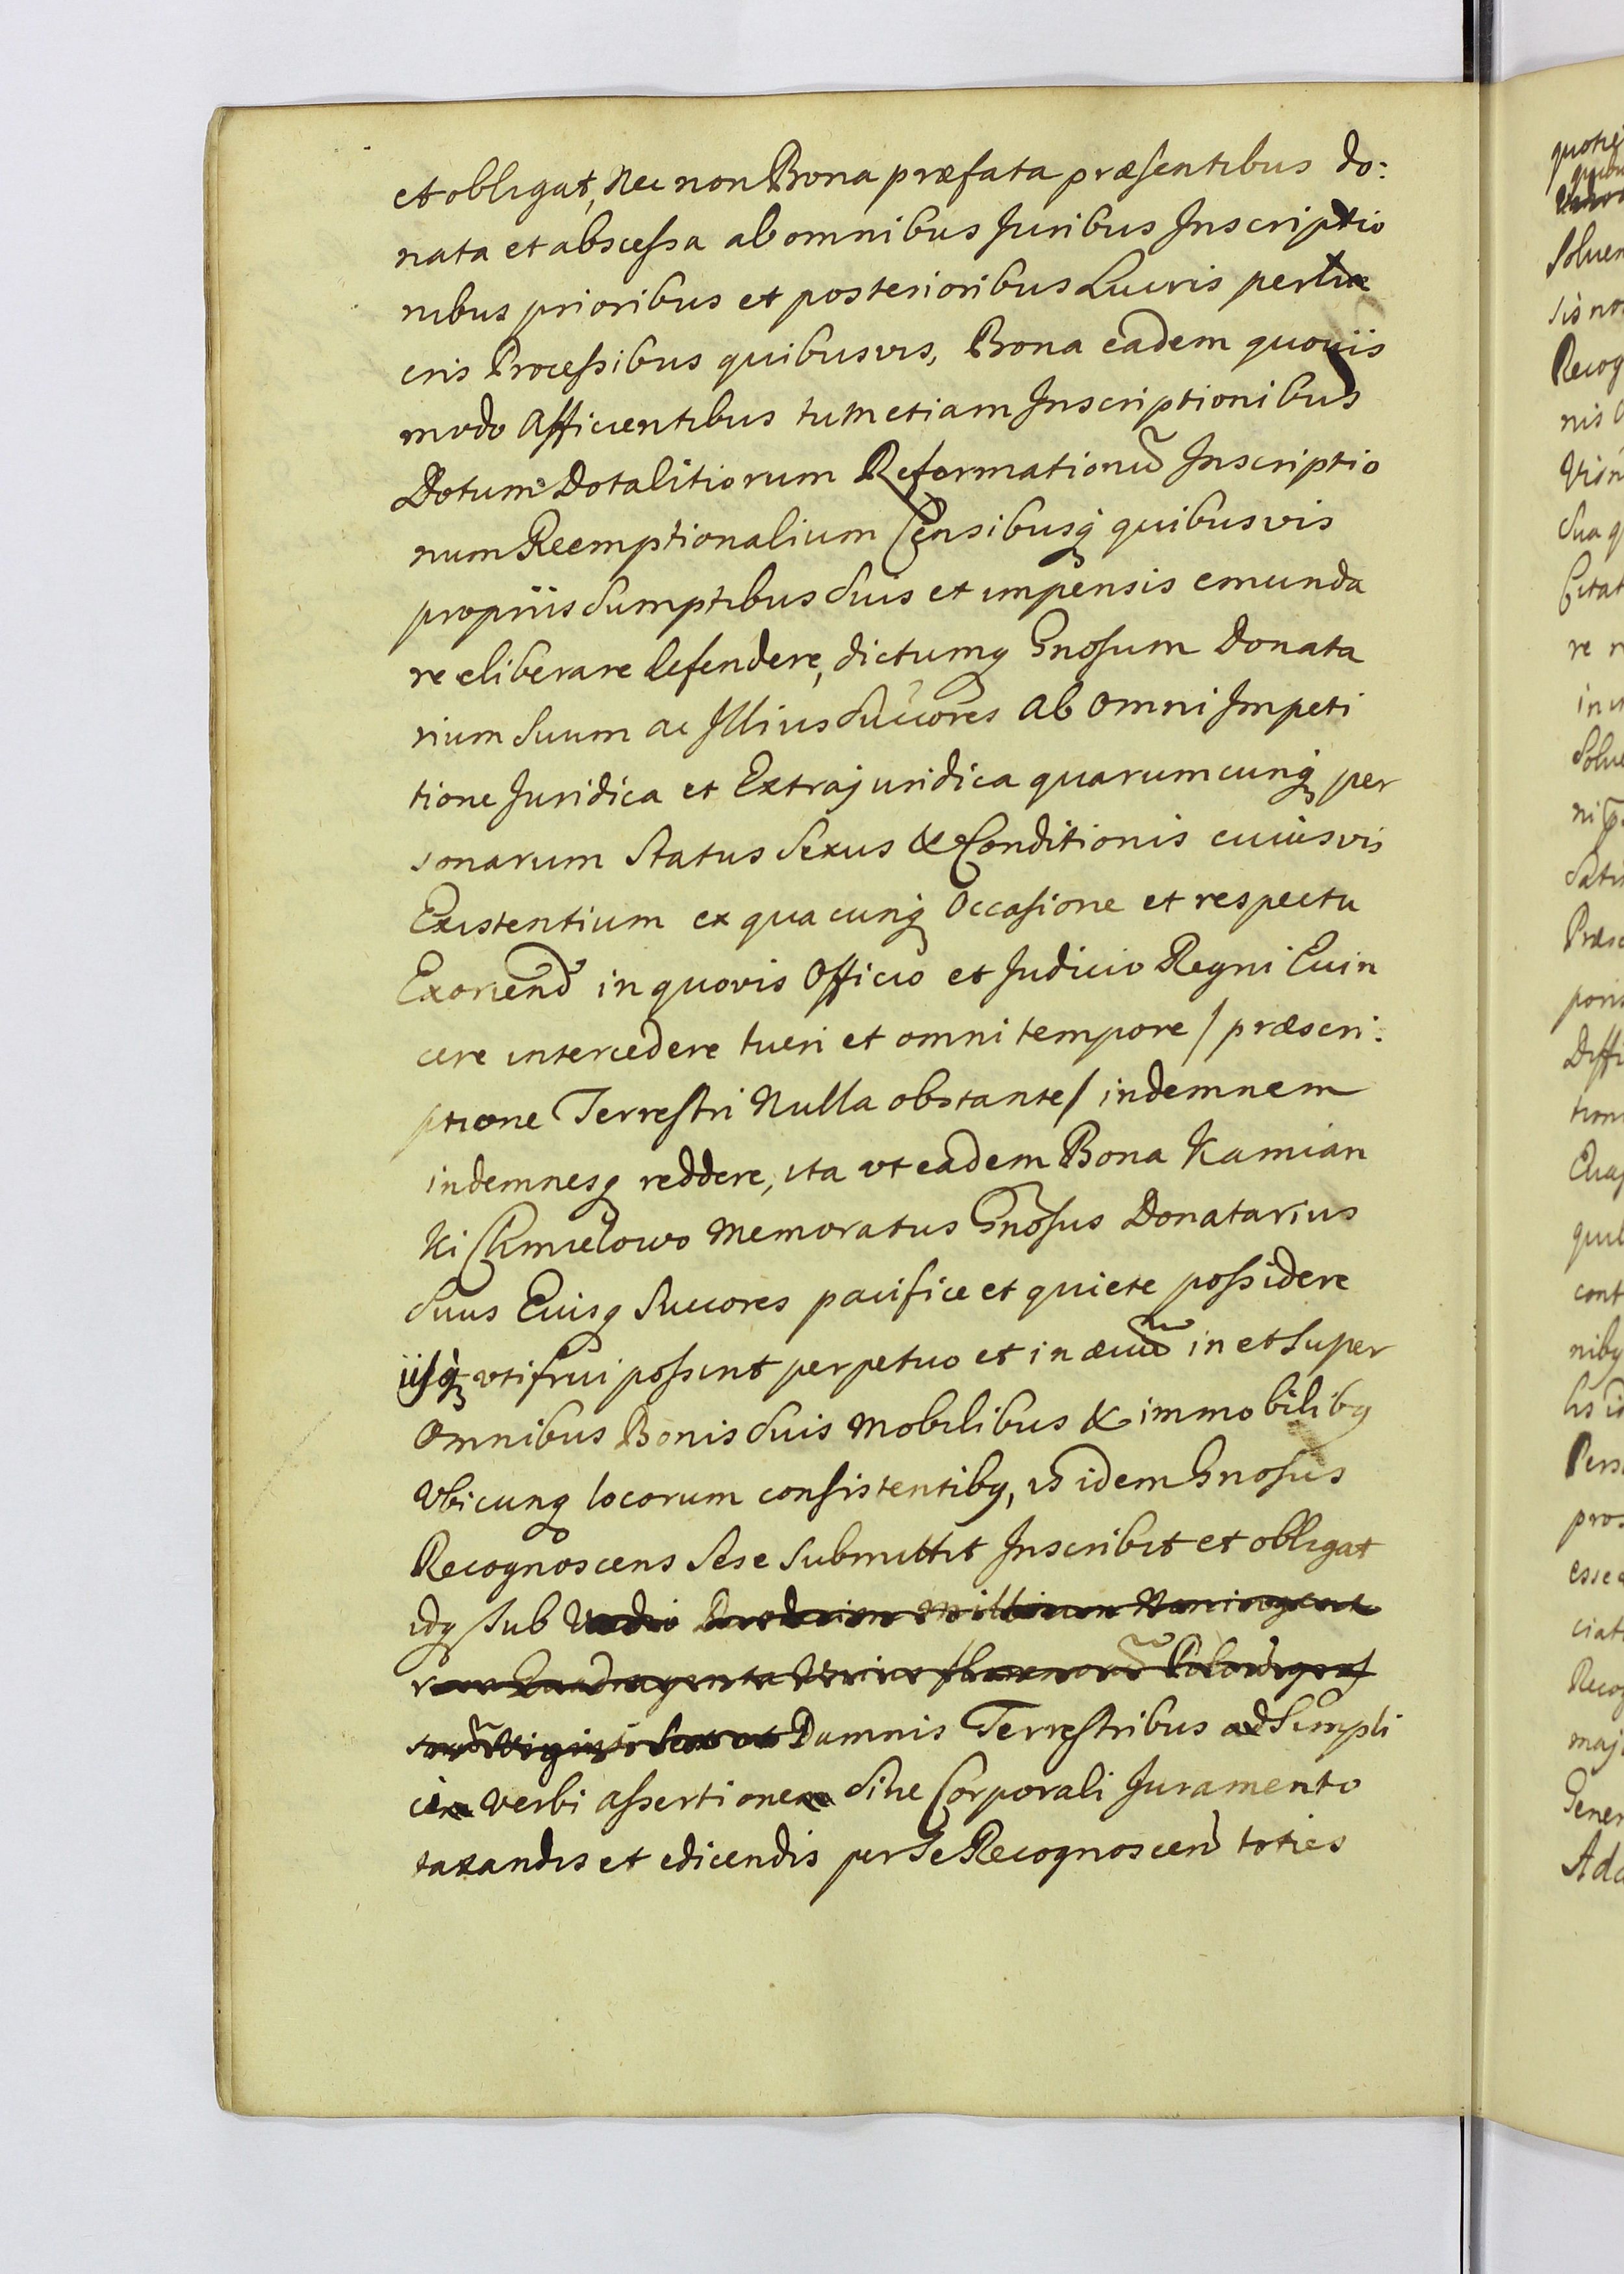 et obligat, Nec non Bona præfata præsentibus do:
nata et abscessa ab omnibus Juribus Inscriptio
nibus prioribus et posterioribus Lucris perlu
cris Processibus quibusvis, Bona eadem quovis
modo Afficientibus tum etiam Inscriptionibus
Dotum Dotalitiorum Reformationũ Inscriptio
num Reemptionalium Censibusq quibusvis
propriis Sumptibus Suis et impensis emunda
re eliberare defendere, dictumq Gnosum Donata
rium Suum ac Illius Succores ab omni Impeti
tione Juridica et Extrajuridica quarumcunq per
sonarum Status Sexus & Conditionis cuiusvis
Existentium ex quacunq Occasione et respectu
Exoriend in quovis Officio et Judicio Regni Evin
cere intercedere tueri et omni tempore / præscri:
ptione Terrestri Nulla obstante / indemnem
indemnesq reddere, ita vt eadem Bona Kamian
ki Chmielowo Memoratus Gnosus Donatarius
Suus Eiusq Succores pacifice et quiete possidere
iisq vti frui possint perpetuo et in ævũ in et Super
Omnibus Bonis Suis Mobilibus & immobilibq
Vbicunq locorum consistentibq, is idem Gnosus
Recognoscens Sese Submittit Inscribit et obligat
idq sub Vadio Millium
Quadraginta Vnius florenorũ
Viginti Damnis Terrestribus ad Simpli
cem Verbi assertionem Sine Corporali Juramento
taxandis et edicendis per Se Recognoscen toties
quotie
Soluen
sis no
Recog
nis
Sua q
Citat
re
Solue
Satis
Præsc
poris
Diffi
tioni
Evas
cont
nibq
Pers
pros
esse
ciat
Recog
maj
Gener
Ada